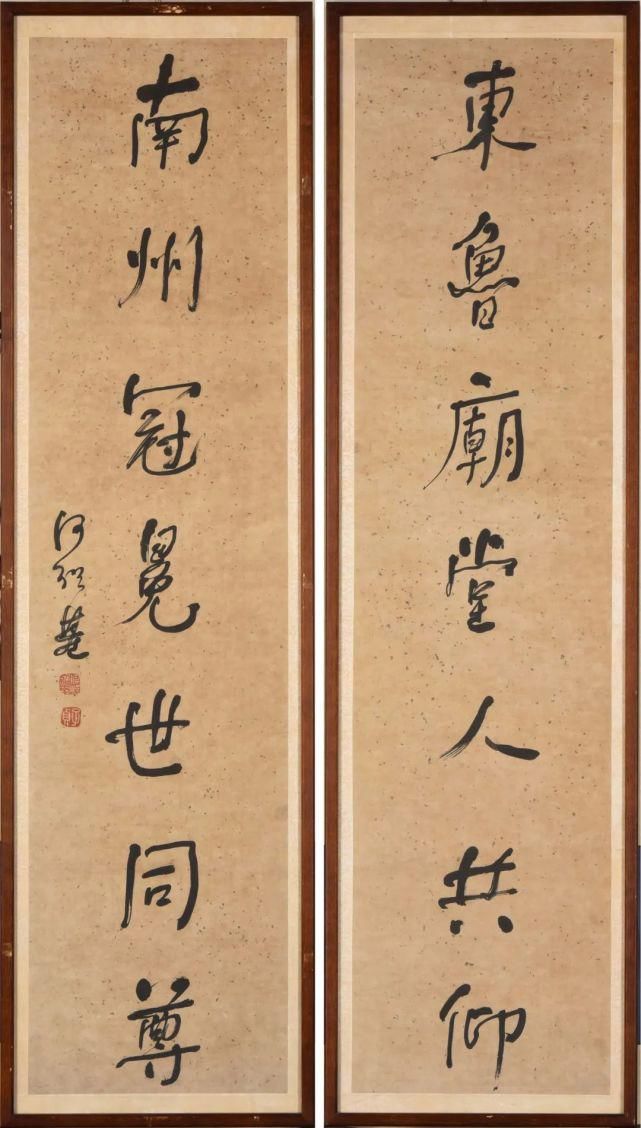 東魯廟堂人共仰
南州冠冕世同尊
何紹基